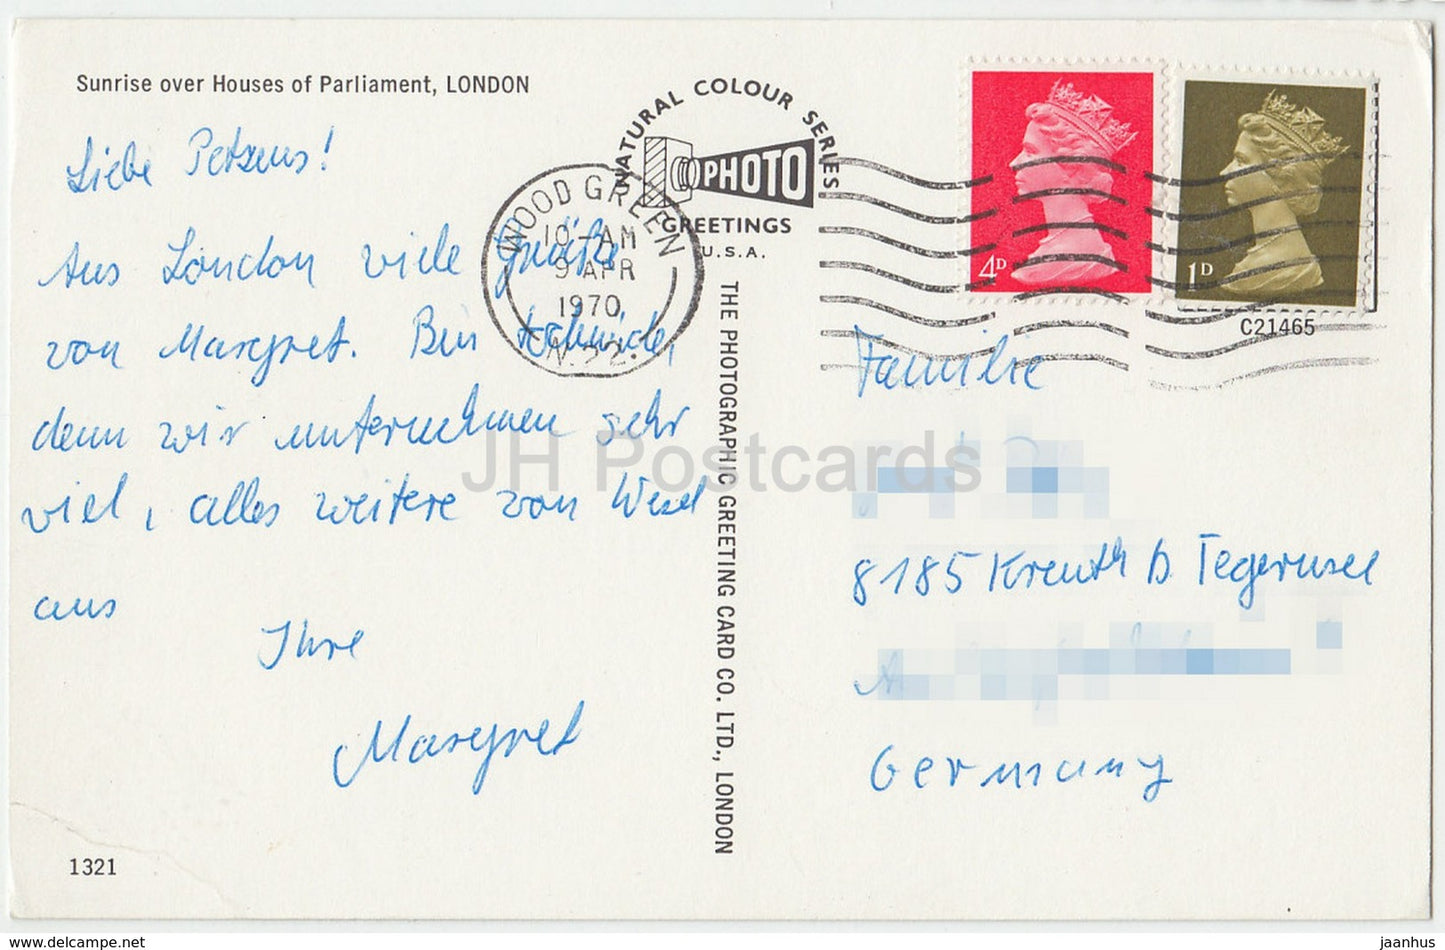 Sunrise over Houses of Parliament, LONDON
NATURAL COLOUR SERIES
PHOTO
GREETINGS
U.S.A.
WOOD GREEN
10-AM
9 APR
1970
N.22.
4D
1D
C21465
Liebe Petzens!
Aus London viele Grüße
von Margret. Bin
denn wir unternehmen sehr
viel, alles weitere von Wesel
aus
Ihre
Margret
THE PHOTOGRAPHIC GREETING CARD CO. LTD., LONDON
Familie
8185 Kreuth b. Tegernsee
Germany
1321
JH Postcards
www.delcampe.net
jaanhus